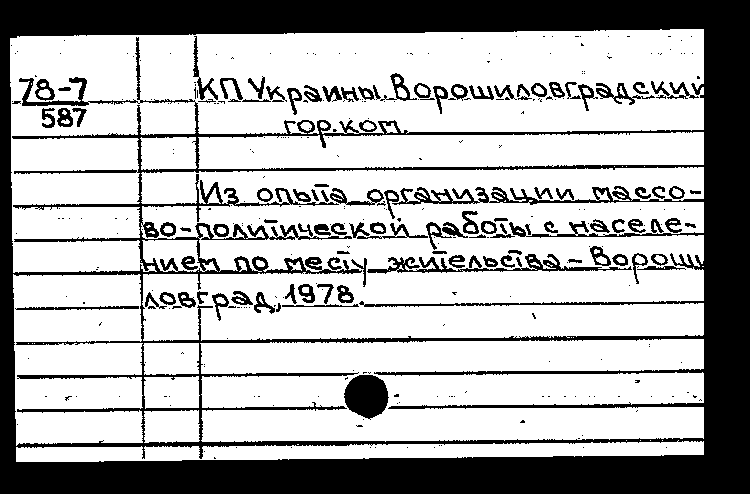 78-7 КП Украины. Ворошиловградский
587 гор.ком.
Из опыта организации массо-
во-политической работы с населе-
нием по месту жительства.- Вороши
ловград, 1978.